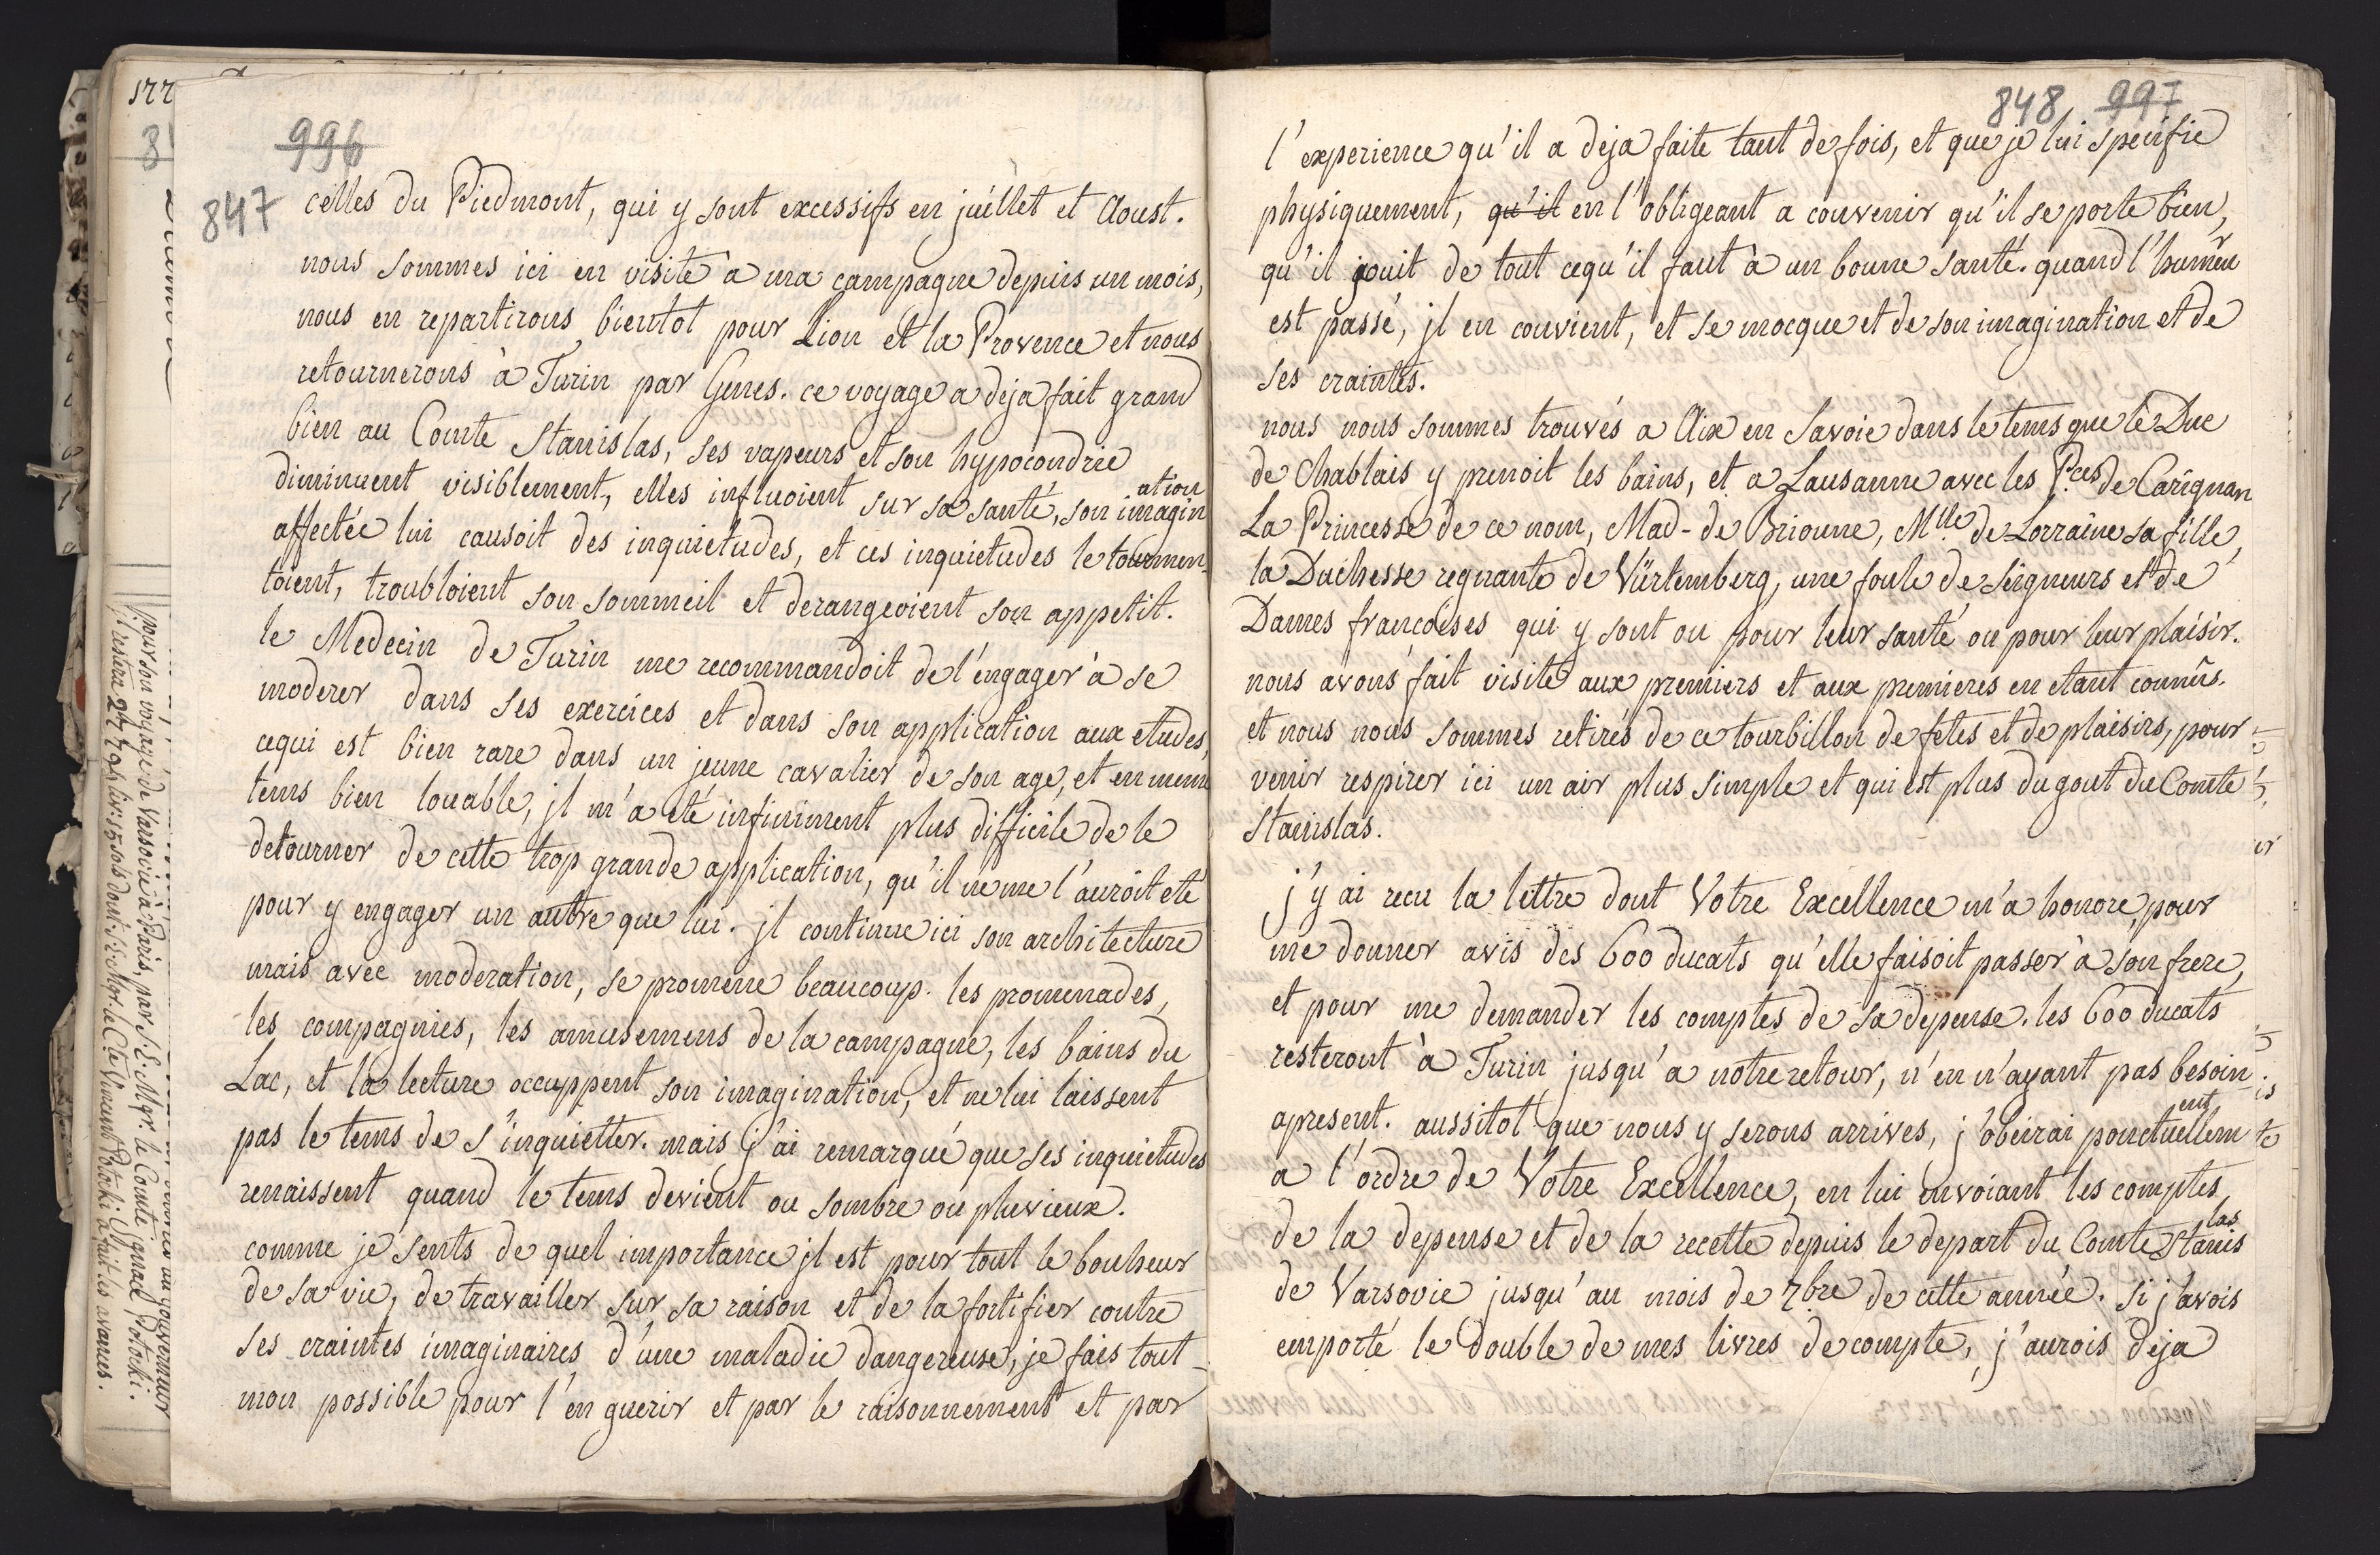 996
847
celles du Piedmont, qui y sont excessifs en juillet et Aoust.
nous sommes ici en visite à ma campagne depuis un mois,
nous en repartirons bientot pour Lion et la Provence et nous
retournerons à Turin par Genes. ce voyage a deja fait grand
bien au Comte Stanislas, ses vapeurs et son hypocondrie
diminuent visiblement, elles influoient sur sa santé, son imagination
affectée lui causoit des inquietudes, et ces inquietudes le tourmen-
toient, troubloient son sommeil et derangeoient son appetit.
le Medecin de Turin me recommandoit de l'engager à se
moderer dans ses exercices et dans son application aux etudes,
cequi est bien rare dans un jeune cavalier de son age, et en meme
tems bien louable, jl m'a eté infiniment plus difficile de le
detourner de cette trop grande application, qu'il ne me l'auroit eté
pour y engager un autre que lui. jl continue ici son architecture
mais avec moderation, se promene beaucoup. les promenades,
les compagnies, les amusemens de la campagne, les bains du
Lac, et la lecture occuppent son imagination, et ne lui laissent
pas le tems de s'inquietter. mais j'ai remarqué que ses inquietudes
renaissent quand le tems devient ou sombre ou pluvieux.
comme je sents de quel importance jl est pour tout le bonheur
de sa vie, de travailler sur sa raison et de la fortifier contre
ses craintes imaginaires d'une maladie dangereuse, je fais tout
mon possible pour l'en guerir et par le raisonnement et par
177
8
pour son voyage de Varsovie à Paris, par S. E. Mgr. le Comte Ignace Potocki.
848 997
l'experience qu'il a deja faite tant de fois, et que je lui specifie
physiquement, qu'il en l'obligeant a convenir qu'il se porte bien,
qu'il jouit de tout cequ'il faut à un bonne santé. quand l'humeur
est passé, jl en convient, et se mocque et de son imagination et de
ses craintes.
nous nous sommes trouvés a Aix en Savoie dans le tems que le Duc
de Chablais y prenoit les bains, et a Lausanne avec les Pces de Carignan
La Princesse de ce nom, Mad- de Brionne, Mlle de Lorraine sa fille,
la Duchesse regnante de Vürtemberg, une foule de Seigneurs et de
Dames françoises qui y sont ou pour leur santé ou pour leur plaisir.
nous avons fait visite aux premiers et aux premieres en etant connûs.
et nous nous sommes retirés de ce tourbillon de fetes et de plaisirs, pour
venir respirer ici un air plus simple et qui est plus du gout du Comte
Stanislas.
j'y ai recu la lettre dont Votre Excellence m'a honoré, pour
me donner avis des 600 ducats qu'elle faisoit passer à son frere,
et pour me demander les comptes de sa depense. les 600 ducats
resteront à Turin jusqu'a notre retour, n'en n'ayant pas besoin
apresent. aussitot que nous y serons arrives, j'obeirai ponctuellement
a l'ordre de Votre Excellence, en lui envoiant les comptes
de la depense et de la recette depuis le depart du Comte Stanislas
de Varsovie jusqu'au mois de 7bre de cette année. Si j'avois
emporté le double de mes livres de compte, j'aurois deja